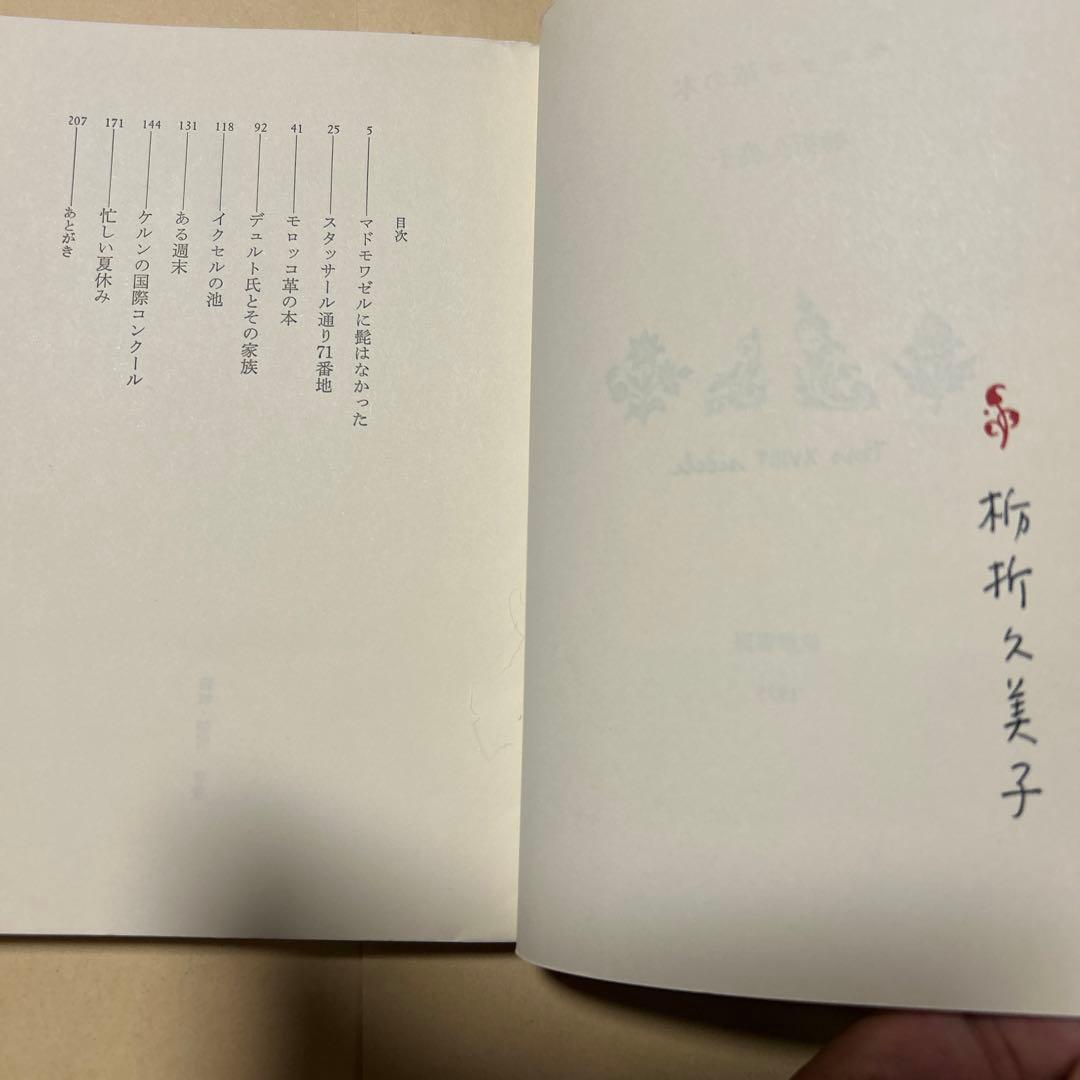 栃折久美子
目次
マドモワゼルに髭はなかった 5
スタッサール通り71番地 25
モロッコ革の本 41
デュルト氏とその家族 92
イクセルの池 118
ある週末 131
ケルンの国際コンクール 144
忙しい夏休み 171
あとがき 207